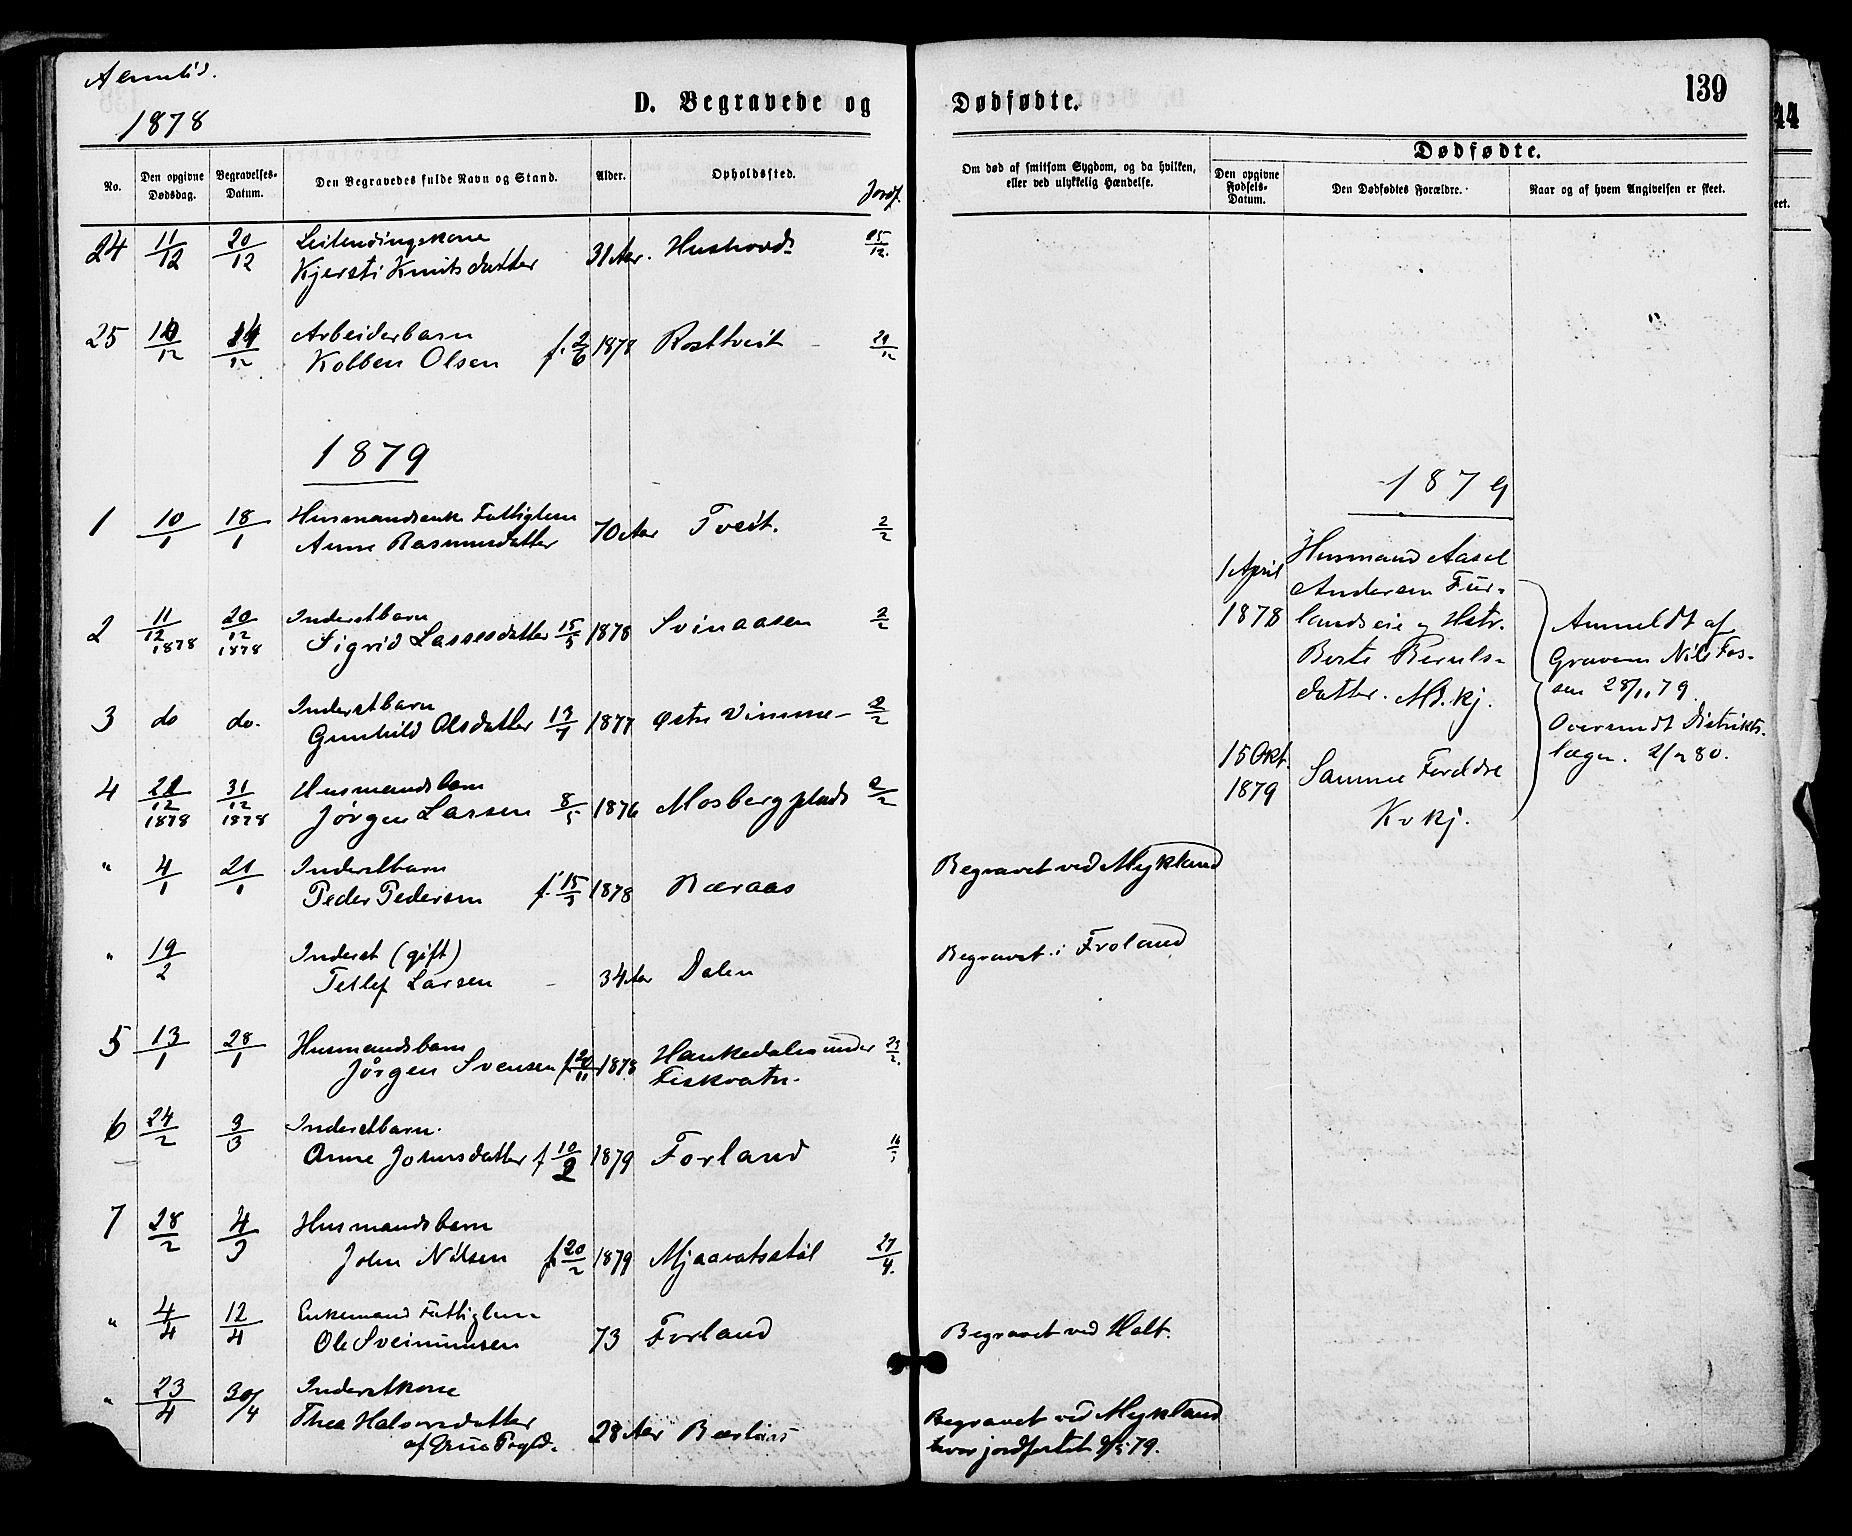 1878
D. Begravede og Dødfødte.
139
No.
Den opgivne Dødsdag.
Begravelses-Datum.
Den Begravedes fulde Navn og Stand.
Alder.
Opholdssted.
Jordf.
Om død af smitsom Sygdom, og da hvilken, eller ved ulykkelig Hændelse.
Dødfødte.
Den opgivne Fødsels-Datum.
Den Dødfødtes Forældre.
Naar og af hvem Angivelsen er skeet.
24 11/12 20/12
Kjersti Knutsdatter 31 Aar.
25 12 12 Arbeiderbarn
Kobben Olsen f. 2/6 1878 Rosttveit 29/12
1879
1 10/1 18/1 Husmandsenke Fattiglem
Anne Rasmusdatter 70 Aar Tveit. 2/2
2 11/12 1878 20/12 1878 Inderstbarn
Sigrid Lassesdatter 15/5 1878 Svinaasen 2/2
3 do do. Inderstbarn
Gunhild Olsdatter 1877 Østre Vimme 2/2
4 12 1878 31/12 1878 Husmandsbarn
Jørgen Larsen 8/5 1876 Mosberg plads 2/2
" 4/1 21/1 Inderstbarn
Peder Pedersen f. 15 1878 Bæraas
Begravet ved Mykland
" 19/2 Inderst (gift)
Tellef Larsen 34 Aar Dalen
Begravet i Froland
5 13/1 28/1 Husmandsbarn
Jørgen Svensen f. 20/11 1878 Haukedalen under
Fiskvatn. 23/2
6 24/2 3/3 Inderstbarn.
Anne Johnsdatter f 10/2 1879 Forland 16
7 28/2 4/3 Husmandsbarn
John Nilsen f. 20/2 1879 Mjaavatsstøl 27/4.
" 4/4 12/4 Enkemand Fattiglem
Ole Sveinunsen 73 Forland
Begravet ved Holt.
" 23/4 30/4 Inderstkone
Thea Halvorsdatter
28 Aar
Begravet ved Mykland
hvor jordfæstet 79.
1879
1 April
1878
Husmand Aasel
Andersen Fur-
landseie og Hstr.
Berte Beruls-
datter. M. kj.
15 Okt.
1879
Samme Foreldre
Kv kj.
Anmeldt af
Graveren Nils Tos-
sen 28/11 79.
Oversendt Distrikts-
lægen. 2/1 80.
44